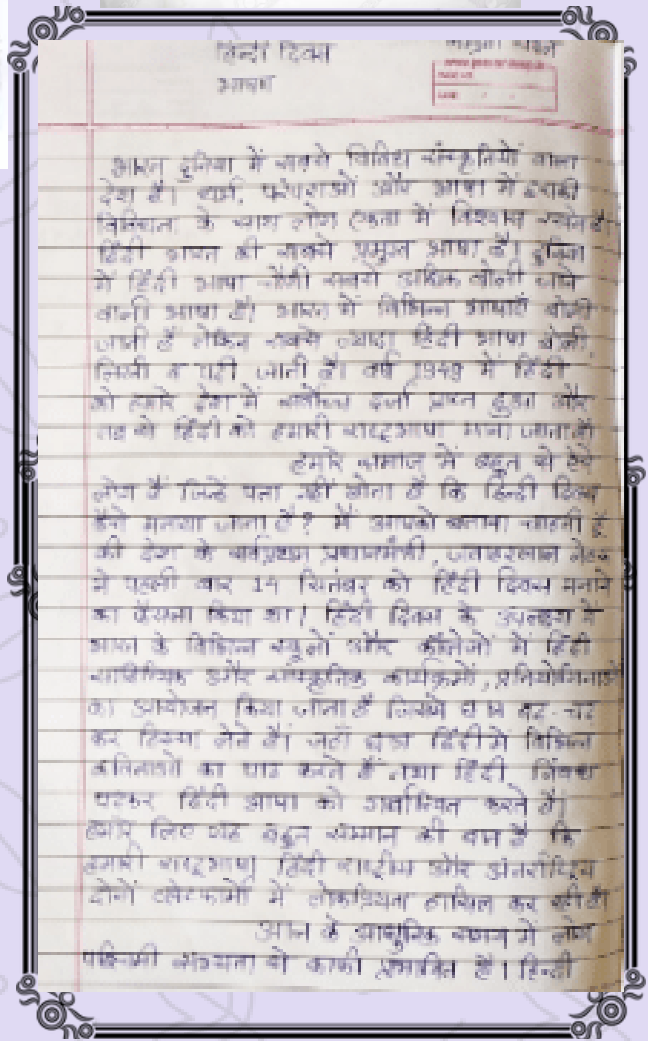 हिन्दी दिवस
भाषण
भारत दुनिया में सबसे विविध संस्कृतियों वाला
देश है। धर्म, परंपराओं और भाषा में इसकी
विविधता के साथ लोग एकता में विश्वास रखते है।
हिंदी भारत की सबसे प्रमुख भाषा है। दुनिया
में हिंदी भाषा चौथी सबसे अधिक बोली जाने
वाली भाषा है। भारत में विभिन्न भाषाएँ बोली
जाती हैं लेकिन सबसे ज्यादा हिंदी भाषा बोली
लिखी व पढ़ी जाती है। वर्ष 1949 में हिंदी
को हमारे देश में सर्वोच्च दर्जा प्राप्त हुआ और
तब से हिंदी को हमारी राष्ट्रभाषा माना जाता है।
हमारे समाज में बहुत से ऐसे
लोग हैं जिन्हें पता नहीं होता है कि हिन्दी दिवस
कैसे मनाया जाता है? मैं आपको बताना चाहती हूँ
की देश के सर्वप्रथम प्रधानमंत्री, जवाहरलाल नेहरू
ने पहली बार 14 सितंबर को हिंदी दिवस मनाने
का फैसला किया था। हिंदी दिवस के उपलक्ष्य में
भारत के विभिन्न स्कूलों और कॉलेजों में हिंदी
साहित्यिक और सांस्कृतिक कार्यक्रमों, प्रतियोगिताओं
का आयोजन किया जाता है जिसमें छात्र बढ़-चढ़
कर हिस्सा लेते है। जहाँ छात्र हिंदी में विभिन्न
कविताओं का पाठ करते हैं तथा हिंदी निबंध
पढ़कर हिंदी भाषा को गर्वान्वित करते है।
हमारे लिए यह बहुत सम्मान की बात है कि
हमारी राष्ट्रभाषा हिंदी राष्ट्रीय और अंतर्राष्ट्रीय
दोनों प्लेटफार्मो में लोकप्रियता हासिल कर रही है।
आज के आधुनिक समय में लोग
पश्चिमी सभ्यता से काफी प्रभावित है। हिन्दी